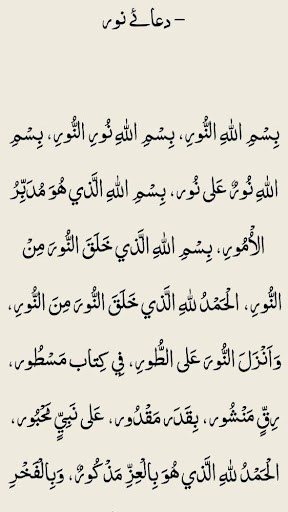 – دعائے نور
بِسْمِ اللهِ النُّورِ، بِسْمِ اللهِ نُورِ النُّورِ، بِسْمِ
اللهِ نُورٌ عَلى نُور، بِسْمِ اللهِ الَّذي هُوَ مُدَبِّرُ
الْأُمُورِ، بِسْمِ اللهِ الَّذي خَلَقَ النُّورَ مِنْ
النُّورِ، الْحَمْدُ للهِ الَّذي خَلَقَ النُّورَ مِنَ النُّورِ،
وَاَنْزَلَ النُّورَ عَلى الطُّورِ، فِي كِتاب مَسْطُور،
رِقٍّ مَنْشُور، بِقَدَر مَقْدُور، عَلى نَبِيٍّ مَحْبُور،
الْحَمْدُ للهِ الَّذي هُوَ بِالْعِزِّ مَذْكُورٌ، وَبِالْفَخْرِ